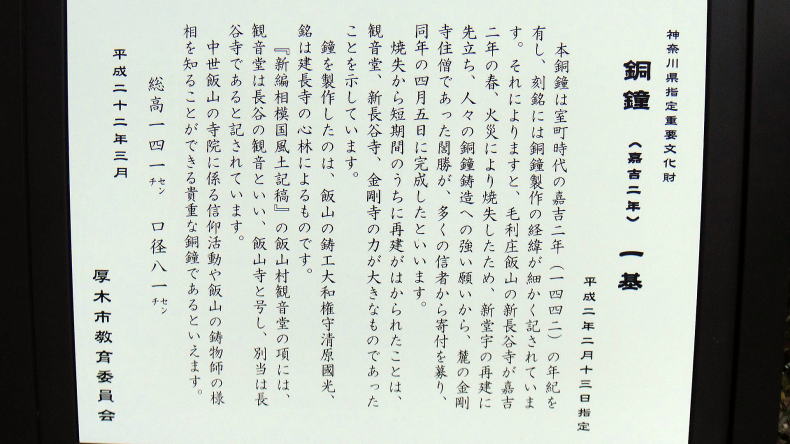 神奈川県指定重要文化財
銅鐘（嘉吉二年）一基
平成二年二月十三日指定
本銅鐘は室町時代の嘉吉二年（一四四二）の年紀を
有し、刻銘には銅鐘製作の経緯が細かく記されていま
す。それによりますと、毛利庄飯山の新長谷寺が嘉吉
二年の春、火災により焼失したため、新堂宇の再建に
先立ち、人々の銅鐘鋳造への強い願いから、麓の金剛
寺住僧であった闇勝が、多くの信者から寄付を募り、
同年の四月五日に完成したといいます。
焼失から短期間のうちに再建がはかられたことは、
観音堂、新長谷寺、金剛寺の力が大きなものであった
ことを示しています。
鐘を製作したのは、飯山の鋳工大和権守清原國光、
銘は建長寺の心林によるものです。
『新編相模国風土記稿』の飯山村観音堂の項には、
観音堂は長谷の観音といい、飯山寺と号し、別当は長
谷寺であると記されています。
中世飯山の寺院に係る信仰活動や飯山の鋳物師の様
相を知ることができる貴重な銅鐘であるといえます。
総高一四一センチ 口径八一センチ
平成二十二年三月
厚木市教育委員会